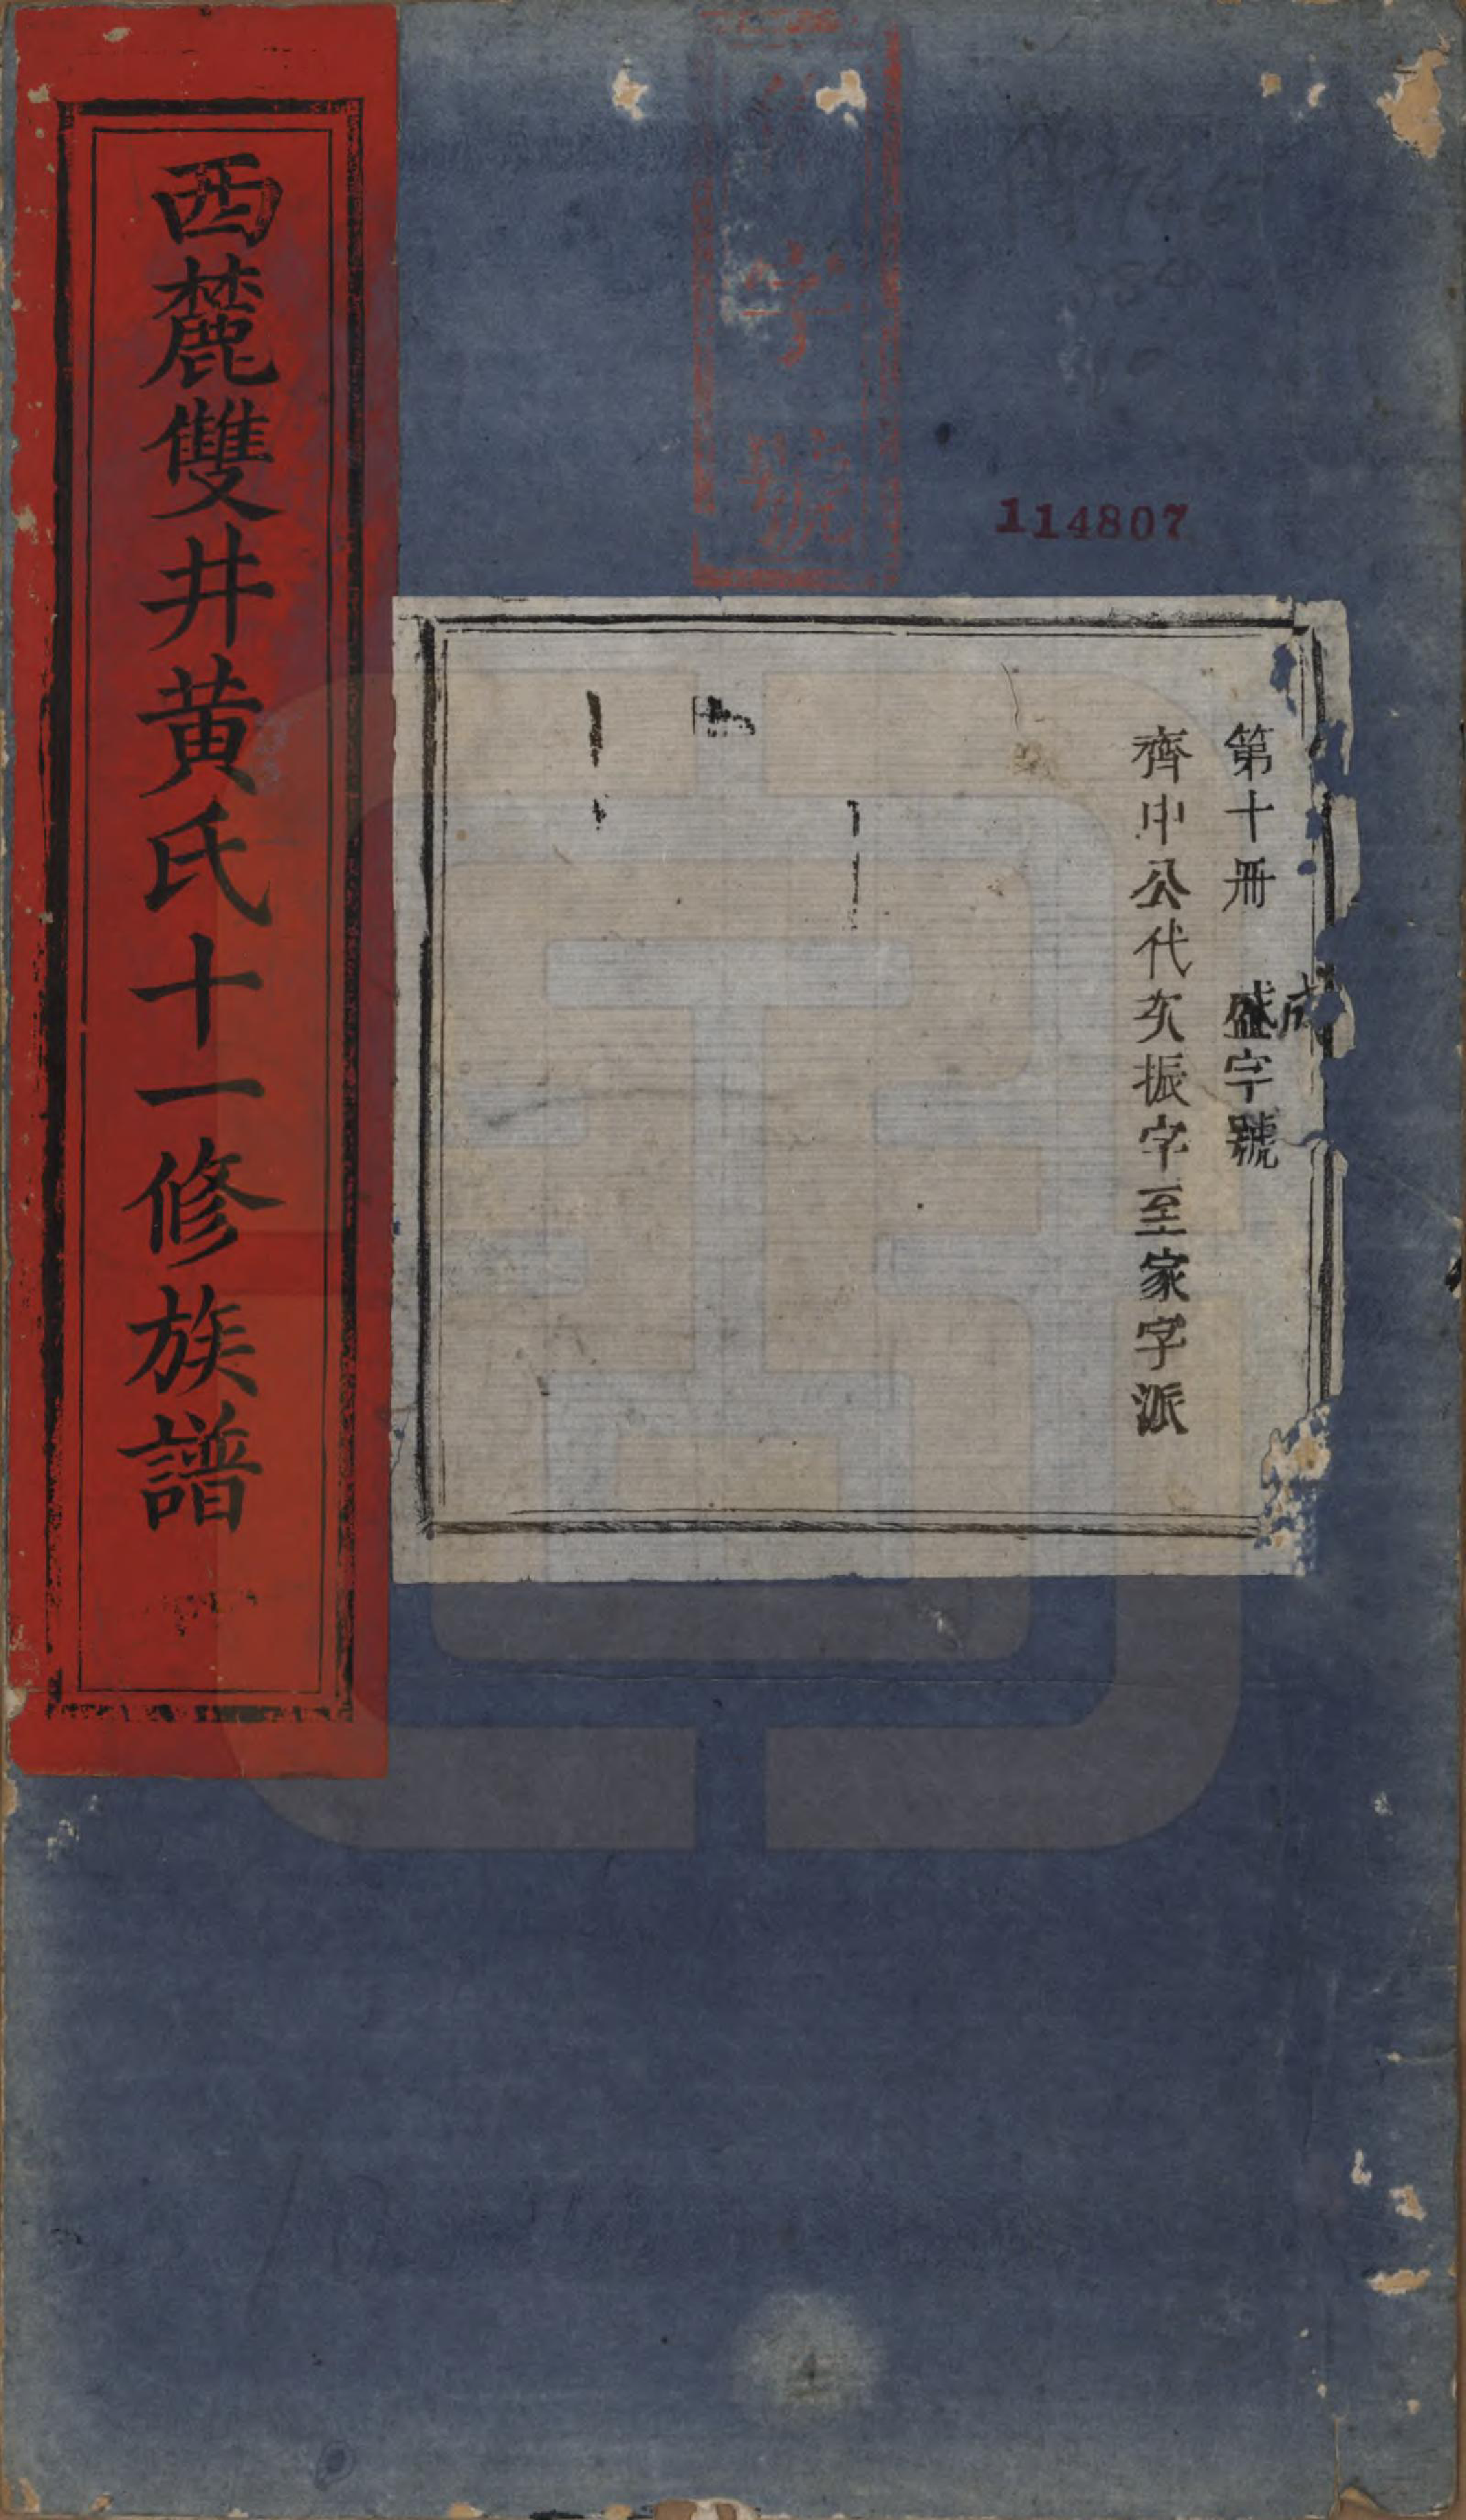 西麓雙井黄氏十一修族譜
字號
114807
第十冊 盛字號
齊中公代次振字至家字派